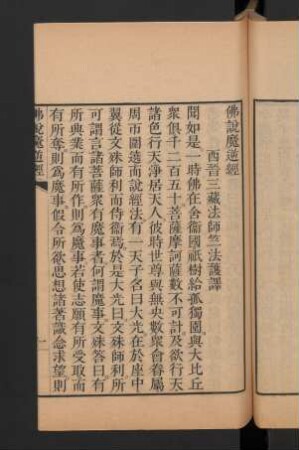 佛說魔逆經
西晉三藏法師竺法護譯
聞如是一時佛在舍衛國祇樹給孤獨園與大比丘
衆俱千二百五十菩薩摩訶薩數不可計及欲行天
諸色行天淨居天人彼時世尊與無央數衆會眷屬
周帀圍遶而說經法有一天子名曰大光在於座中
翼從文殊師利而侍衞焉於是大光白文殊師利所
可謂言諸菩薩衆有魔事者何謂魔事文殊答曰有
所興業而有所作則爲魔事若使志願有所受取而
有所奪則爲魔事假令所欲思想諸著識念求望則
佛說魔逆經
一